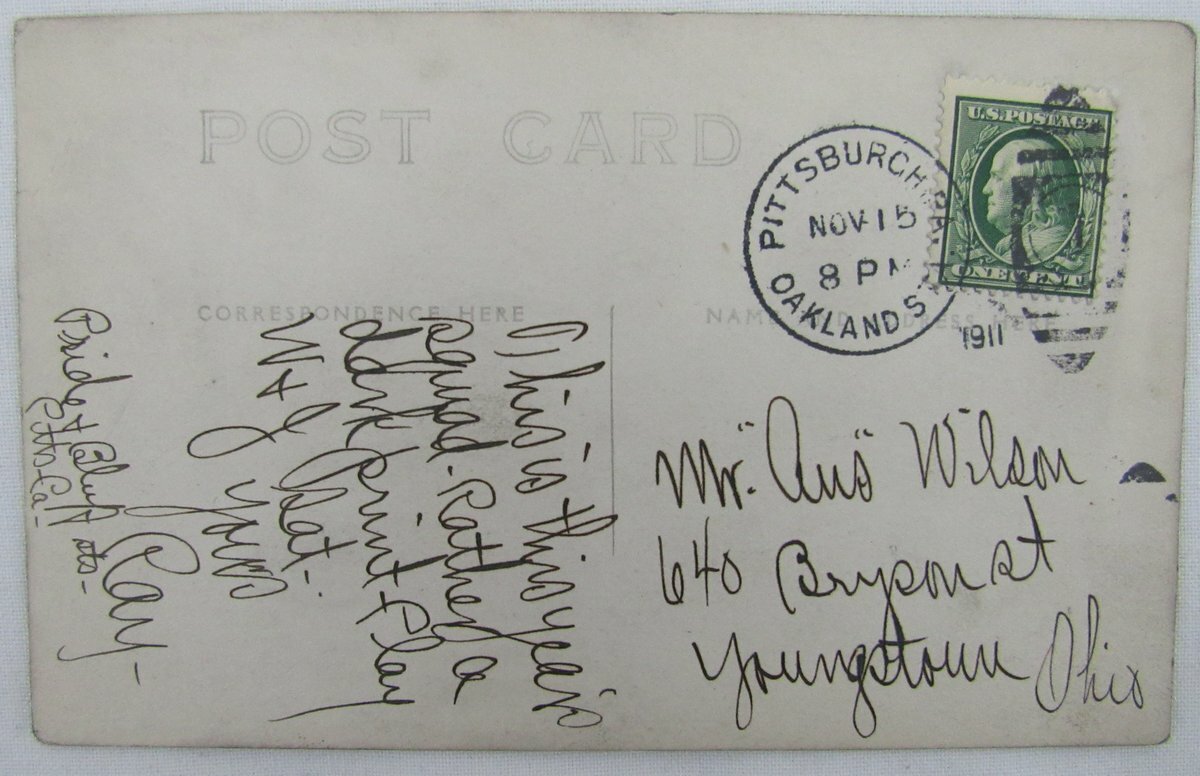 POST CARD
U.S. POSTAGE
ONE CENT
PITTSBURGH, PA.
NOV 15
8 PM
OAKLAND STA.
1911
CORRESPONDENCE HERE
NAME AND ADDRESS HERE
This is this year's
squad. Rather a
dark print. Play
W & J Sat.
Yours
Ray
Pride & Bluff sts.
Pitts. Pa.
Mr. "Aus" Wilson
640 Bryson st
Youngstown Ohio